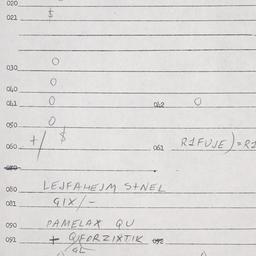 020
021 $
030 0
040 0
041 0 042 0
050 0
060 +/ $ 061 R1FUJE)=R1
080 LEJFAHEJM S+NEL
081 GIX/-
090 PAMELAX QU
091 + QJFDRZIXTIK 092